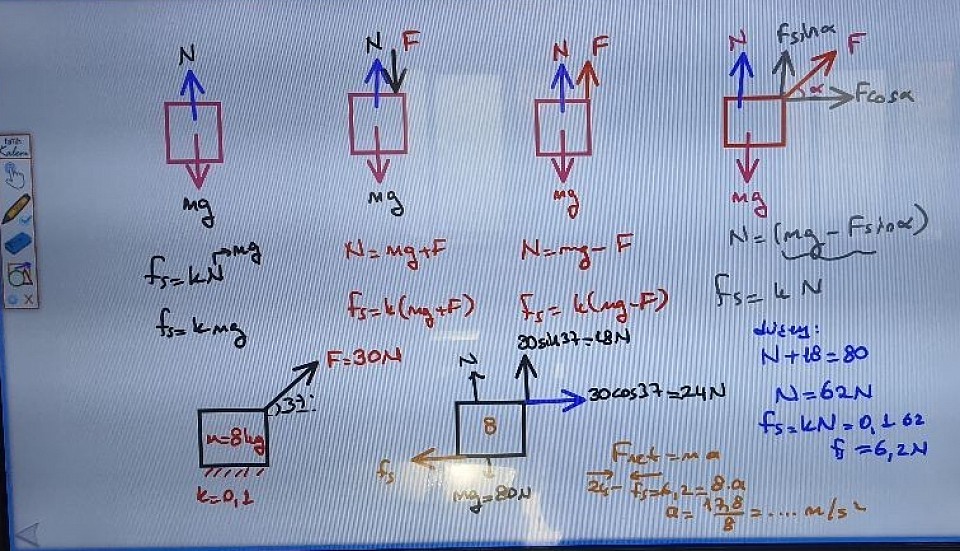 N
mg
fs=kN → mg
fs=kmg
N F
mg
N=mg+F
fs=k(mg+F)
N F
mg
N=mg-F
fs=k(mg-F)
N Fsinα F
α Fcosα
mg
N=(mg-Fsinα)
fs=kN
F=30N
37°
m=8kg
k=0,1
N
30sin37=18N
30cos37=24N
8
fs
mg=80N
düşey:
N+18=80
N=62N
fs=kN=0,1 62
f=6,2N
Fnet=ma
24-fs=6,2=8.a
a=17,8/8=....m/s²
Kalem
X